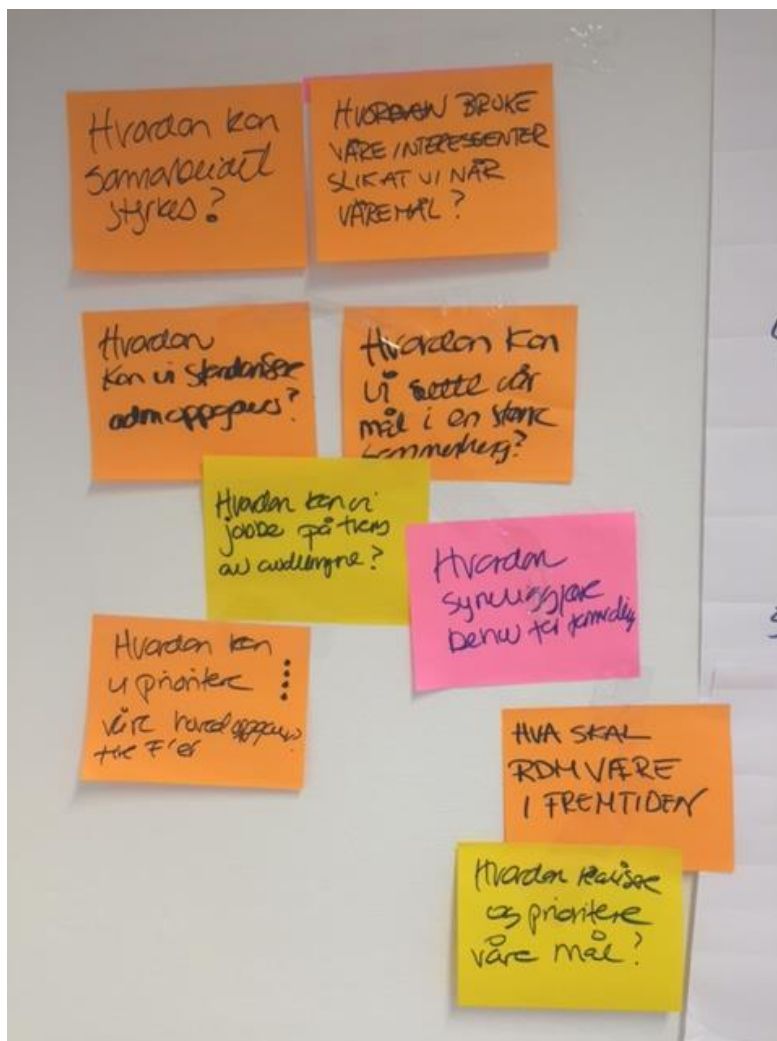 Hvordan kan
samarbeidet
styrkes?
HVORDAN BRUKE
VÅRE INTERESSENTER
SLIK AT VI NÅR
VÅRE MÅL?
Hvordan
kan vi standardisere
adm oppgaver?
Hvordan kan
vi sette vår
mål i en større
sammenheng?
Hvordan kan vi
jobbe på tvers
av avdelingene?
Hvordan
synliggjøre
behov for
Hvordan kan
vi prioritere
våre hovedoppgaver
tre F'er
HVA SKAL
RDM VÆRE
I FREMTIDEN
Hvordan realisere
og prioritere
våre mål?